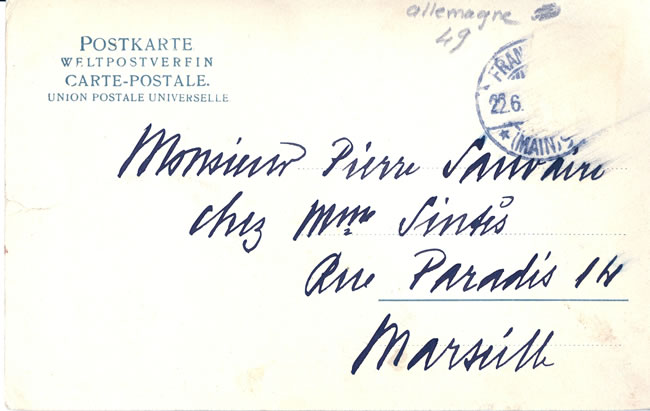 allemagne
49
POSTKARTE
WELTPOSTVEREIN
CARTE-POSTALE.
UNION POSTALE UNIVERSELLE
FRAN
22.6.
* (MAIN)
Monsieur Pierre Sauvaire
chez Mme Sintès
Rue Paradis 14
Marseille